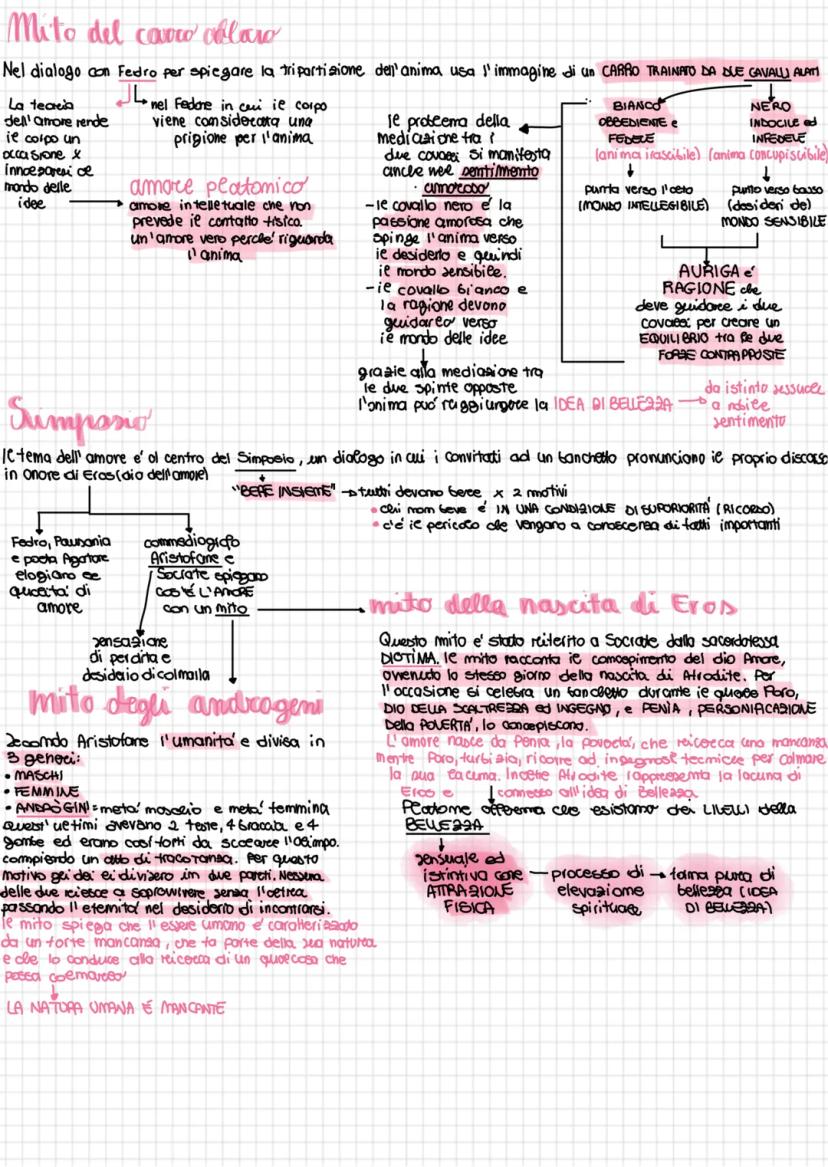 Mito del carro alato
Nel dialogo con Fedro per spiegare la tripartizione dell'anima usa l'immagine di un CARRO TRAINATO DA DUE CAVALLI ALATI
La teoria
dell'amore rende
il corpo un
occasione x
innalzarsi al
mondo delle
idee
nel Fedone in cui il corpo
viene considerata una
prigione per l'anima
amore platonico
amore intellettuale che non
prevede il contatto fisico.
un'amore vero perché riguarda
l'anima
le problema della
mediazione tra i
due cavalli si manifesta
anche nel sentimento
amoroso
- il cavallo nero é la
passione amorosa che
spinge l'anima verso
il desiderio e quindi
il mondo sensibile.
- il cavallo bianco e
la ragione devono
guidarlo verso
il mondo delle idee
grazie alla mediazione tra
le due spinte opposte
l'anima può raggiungere la IDEA DI BELLEZZA
da istinto sessuale
a nobile
sentimento
BIANCO
OBBEDIENTE e
FEDELE
(anima irascibile)
punta verso l'alto
(MONDO INTELLEGIBILE)
NERO
INDOCILE ed
INFEDELE
(anima concupiscibile)
punta verso basso
(desideri del
MONDO SENSIBILE
AURIGA e'
RAGIONE che
deve guidare i due
cavalli per creare un
EQUILIBRIO tra le due
FORZE CONTRAPPOSTE
Simposio
Il tema dell'amore e' al centro del Simposio, un dialogo in cui i convitati ad un banchetto pronunciano il proprio discorso
in onore di Eros (dio dell'amore)
"BERE INSIEME" → tutti devono bere x 2 motivi
• chi non beve é IN UNA CONDIZIONE DI SUPORIORITÁ (RICORDO)
• c'é il pericolo che vengano a conoscenza di fatti importanti
Fedro, Pausania
e poeta Agatone
elogiano le
qualita' di
amore
commediografo
Aristofane e
Socrate spiegano
cos'é L'AMORE
con un mito
sensazione
di perdita e
desiderio di colmalla
mito degli androgeni
Secondo Aristofane l'umanita' e divisa in
3 generi:
• MASCHI
• FEMMINE
• ANDROGINI = meta' maschio e meta' femmina
questi ultimi avevano 2 teste, 4 braccia e 4
gambe ed erano cosí forti da scalare l'olimpo.
compiendo un atto di tracotanza. Per questo
motivo gli dei li divisero in due parti. Nessuna
delle due riesce a sopravvivere senza l'altra
passando l'eternitá nel desiderio di incontrarsi.
il mito spiega che l'essere umano e' caratterizzato
da un forte mancanza, che fa parte della sua natura
e che lo conduce alla ricerca di un qualcosa che
possa colmarlo
LA NATURA UMANA É MANCANTE
mito della nascita di Eros
Questo mito e' stato riferito a Socrate dalla sacerdotessa
DIOTIMA. Il mito racconta il concepimento del dio Amore,
avvenuto lo stesso giorno della nascita di Afrodite. Per
l'occasione si celebra un banchetto durante il quale Poro,
DIO DELLA SCALTREZZA ed INGEGNO, e PENÌA, PERSONIFICAZIONE
della POVERTÁ, lo concepiscono.
L'amore nasce da Penia, la povertà, che ricerca una mancanza
mentre Poro, furbizia, ricorre ad ingegnose tecniche per colmare
la sua lacuna. Inoltre Afrodite rappresenta la lacuna di
Eros e connesso all'idea di Bellezza.
Platone afferma che esistono dei LIVELLI della
BELLEZZA
sensuale ed
istintiva come
ATTRAZIONE
FISICA
processo di
elevazione
spirituale
forma pura di
bellezza (IDEA
DI BELLEZZA)